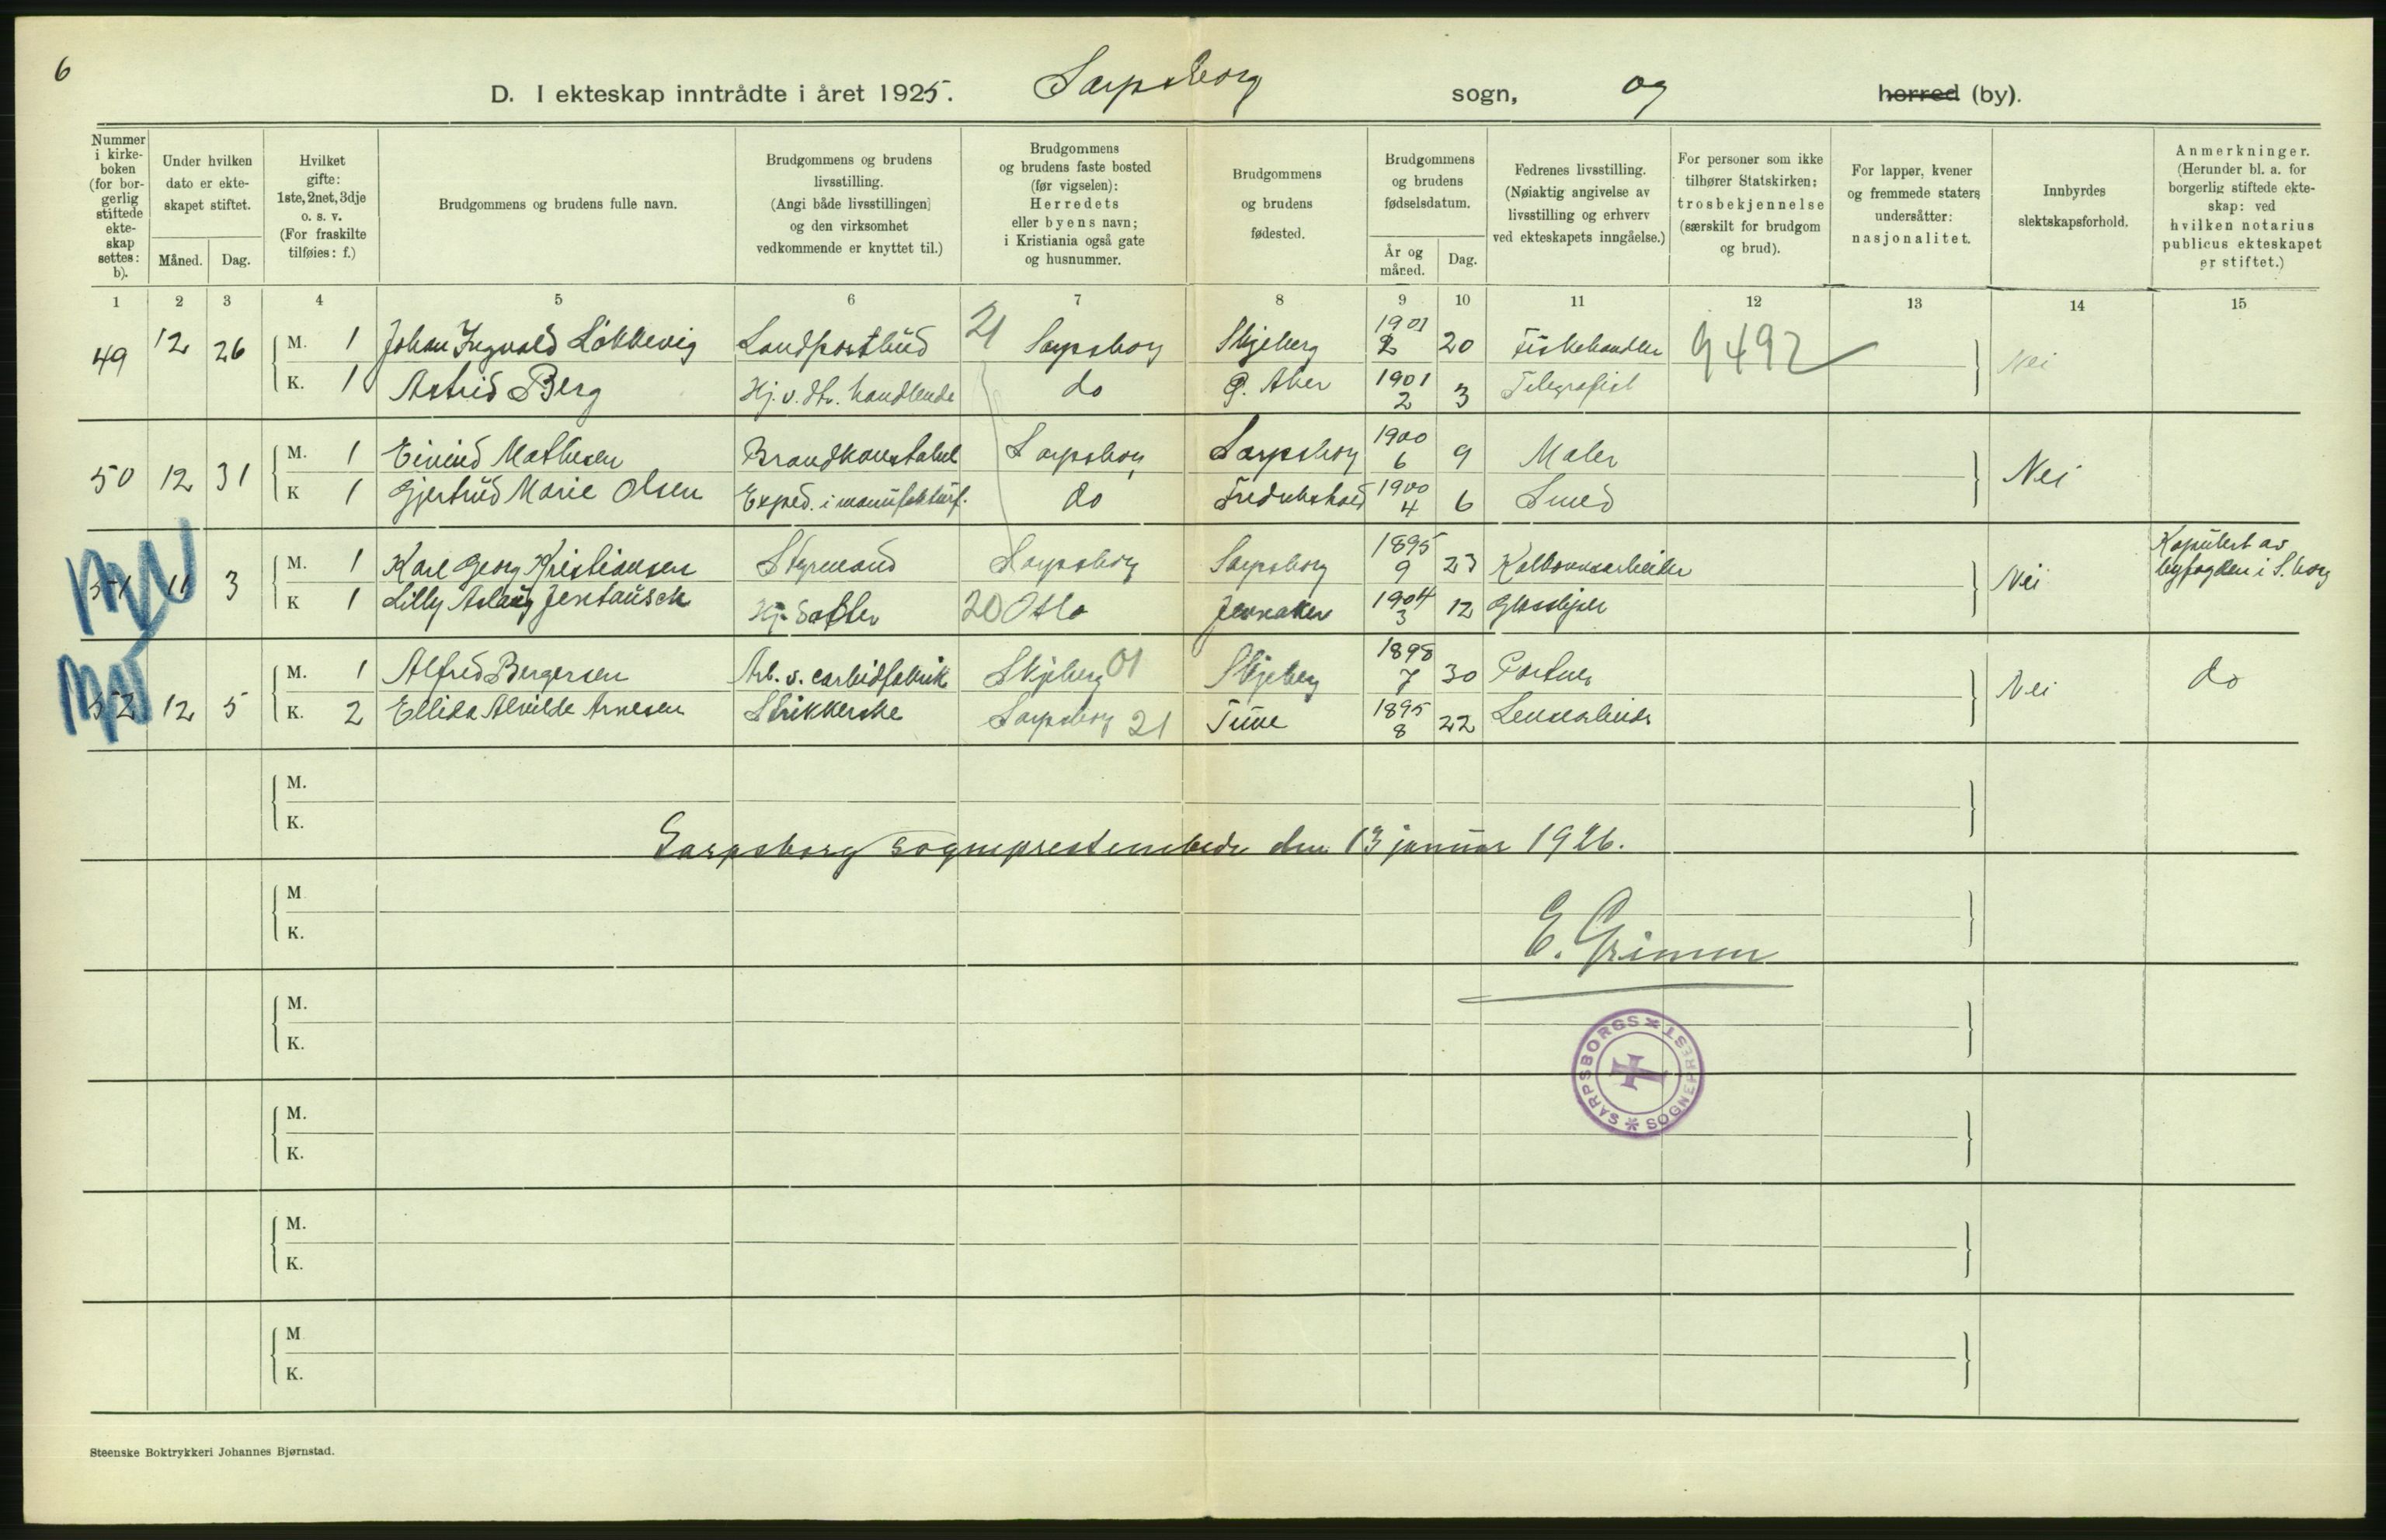 6
D. I ekteskap inntrådte i året 1925. Sarpsborg sogn, og herred (by).
Nummer i kirke-boken (for bor-gerlig stiftede ekte-skap settes: b).
Under hvilken dato er ekte-skapet stiftet.
Måned. Dag.
Hvilket gifte: 1ste, 2net, 3dje o. s. v. (For fraskilte tilføies: f.)
Brudgommens og brudens fulle navn.
Brudgommens og brudens livsstilling. (Angi både livsstillingen og den virksomhet vedkommende er knyttet til.)
Brudgommens og brudens faste bosted (før vigselen): Herredets eller byens navn; i Kristiania også gate og husnummer.
Brudgommens og brudens fødested.
Brudgommens og brudens fødselsdatum.
År og måned. Dag.
Fedrenes livsstilling. (Nøiaktig angivelse av livsstilling og erhverv ved ekteskapets inngåelse.)
For personer som ikke tilhører Statskirken: trosbekjennelse (særskilt for brudgom og brud).
For lapper, kvener og fremmede staters undersåtter: nasjonalitet.
Innbyrdes slektskapsforhold.
Anmerkninger. (Herunder bl. a. for borgerlig stiftede ekte-skap: ved hvilken notarius publicus ekteskapet er stiftet.)
1 2 3 4 5 6 7 8 9 10 11 12 13 14 15
49 12 26 M. 1 Johan Ingvald Løkkevig Landpostbud 21 Sarpsborg Skjeberg 1901 2 20 Fiskehandler 9492 Nei
K. 1 Astrid Berg Hj. v. str. handlende do Ø. Aker 1901 2 3 Telegrafist
50 12 31 M. 1 Eivind Mathesen Brandkonstabel Sarpsborg Sarpsborg 1900 6 9 Maler Nei
K 1 Gjertrud Marie Olsen Exped. i manufakturf. do Fredrikshald 1900 4 6 Smed
51 11 3 M. 1 Karl Georg Kristiansen Styrmand Sarpsborg Sarpsborg 1895 9 23 Nei Kopulert av byfogden i S.borg
K 1 Lilly Aslaug Hj. datter 20 Oslo Jevnaker 1904 3 12
52 12 5 M. 1 Alfred Bergersen Arb. v. carbidfabrik Skjeberg 01 Skjeberg 1898 7 30 Portner Nei do
K. 2 Ellida Alvilde Arnesen Strikkerske Sarpsborg 21 Tune 1895 8 22 Lensearbeider
M.
K.
Sarpsborg sogneprestembede den 13 januar 1926.
M
K.
E. Grimm
M.
K.
SARPSBORGS * SOGNEPREST *
M.
K.
M.
K.
M
K.
Steenske Boktrykkeri Johannes Bjørnstad.